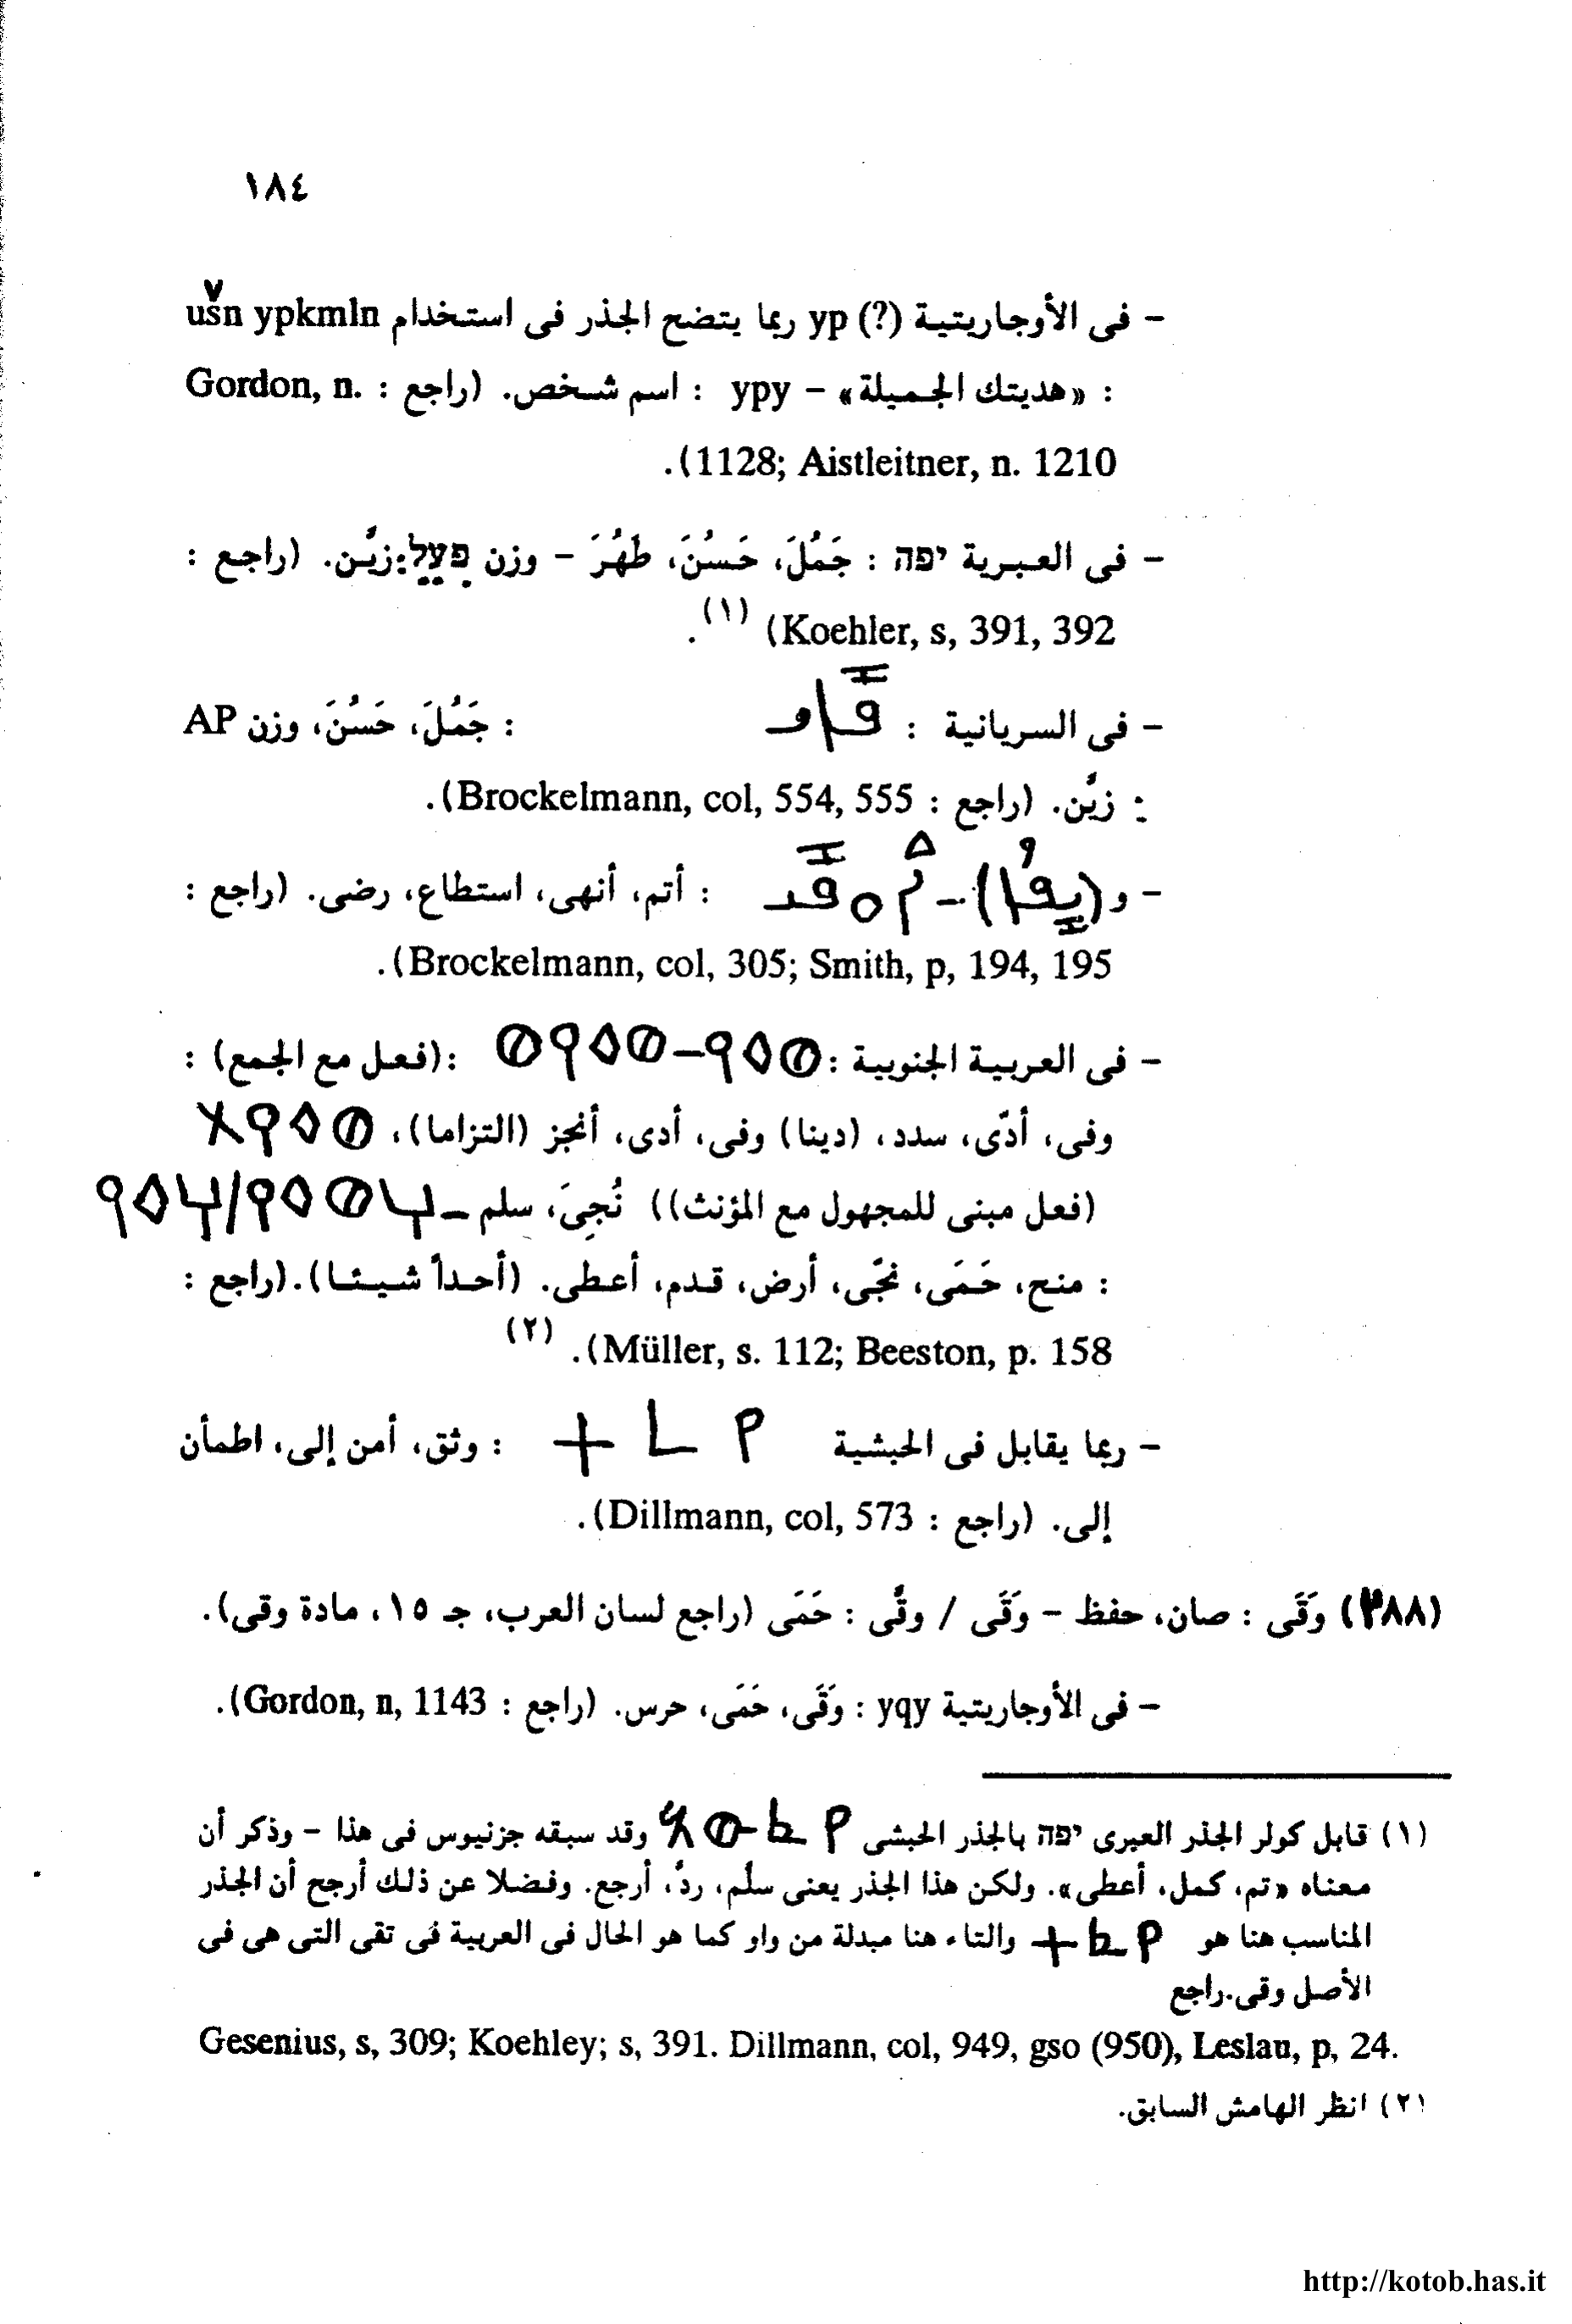 ١٨٤
- فى الأوجاريتية yp (?) ربما يتضح الجذر فى استخدام ušn ypkmln
: «هديتك الجميلة» - ypy : اسم شخص. (راجع : Gordon, n.
1128; Aistleitner, n. 1210).
- فى العبرية יפה : جَمُلَ، حَسُنَ، طَهُرَ - وزن פעל: زيَّن. (راجع :
Koehler, s, 391, 392) (١).
- فى السريانية : : جَمُلَ، حَسُنَ، وزن AP
: زيَّن. (راجع : Brockelmann, col, 554, 555).
- و : أتم، أنهى، استطاع، رضى. (راجع :
Brockelmann, col, 305; Smith, p, 194, 195).
- فى العربية الجنوبية : 𐩥𐩰𐩺-𐩥𐩰𐩺𐩥 :(فعل مع الجمع) :
وفى، أدّى، سدد، (دينا) وفى، أدى، أنجز (التزاما)، 𐩥𐩰𐩺𐩩
(فعل مبنى للمجهول مع المؤنث)) نُجِىَ، سلم - 𐩠𐩥𐩰𐩺/𐩠𐩰𐩺
: منح، حَمَى، نجّى، أرض، قدم، أعطى. (أحداً شيئا).(راجع :
Müller, s. 112; Beeston, p. 158). (٢)
- ربما يقابل فى الحبشية : وثق، أمن إلى، اطمأن
إلى. (راجع : Dillmann, col, 573).
(٣٨٨) وَقَى : صان، حفظ - وَقَى / وقَّى : حَمَى (راجع لسان العرب، جـ ١٥، مادة وقى).
- فى الأوجاريتية yqy : وَقَى، حَمَى، حرس. (راجع : Gordon, n, 1143).
(١) قابل كولر الجذر العبرى יפה بالجذر الحبشى وقد سبقه جزنيوس فى هذا - وذكر أن
معناه «تم، كمل، أعطى». ولكن هذا الجذر يعنى سلَّم، ردَّ، أرجع. وفضلا عن ذلك أرجح أن الجذر
المناسب هنا هو والتاء هنا مبدلة من واو كما هو الحال فى العربية فى تقى التى هى فى
الأصل وقى.راجع
Gesenius, s, 309; Koehley; s, 391. Dillmann, col, 949, gso (950), Leslau, p, 24.
(٢) انظر الهامش السابق.
http://kotob.has.it